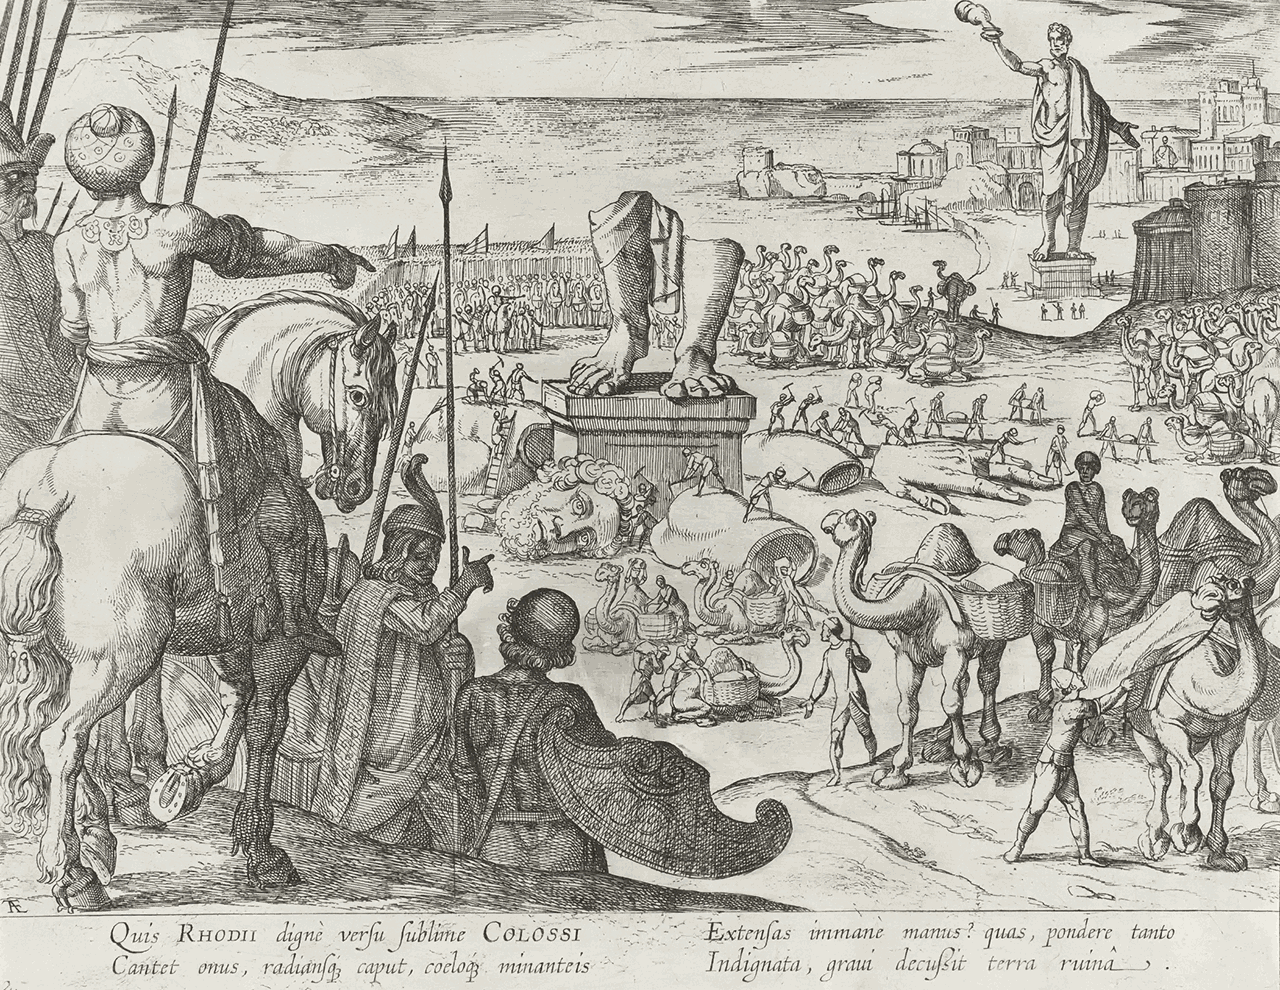 AE
Quis RHODII dignè versu ſublime COLOSSI
Cantet onus, radianſq́; caput, coeloq́; minanteis
Extenſas immanè manus? quas, pondere tanto
Indignata, graui decuſsit terra ruinâ.